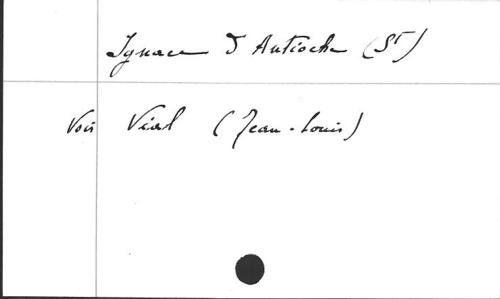 Ignace d'Antioche (St)
Voir Vial (Jean-Louis)